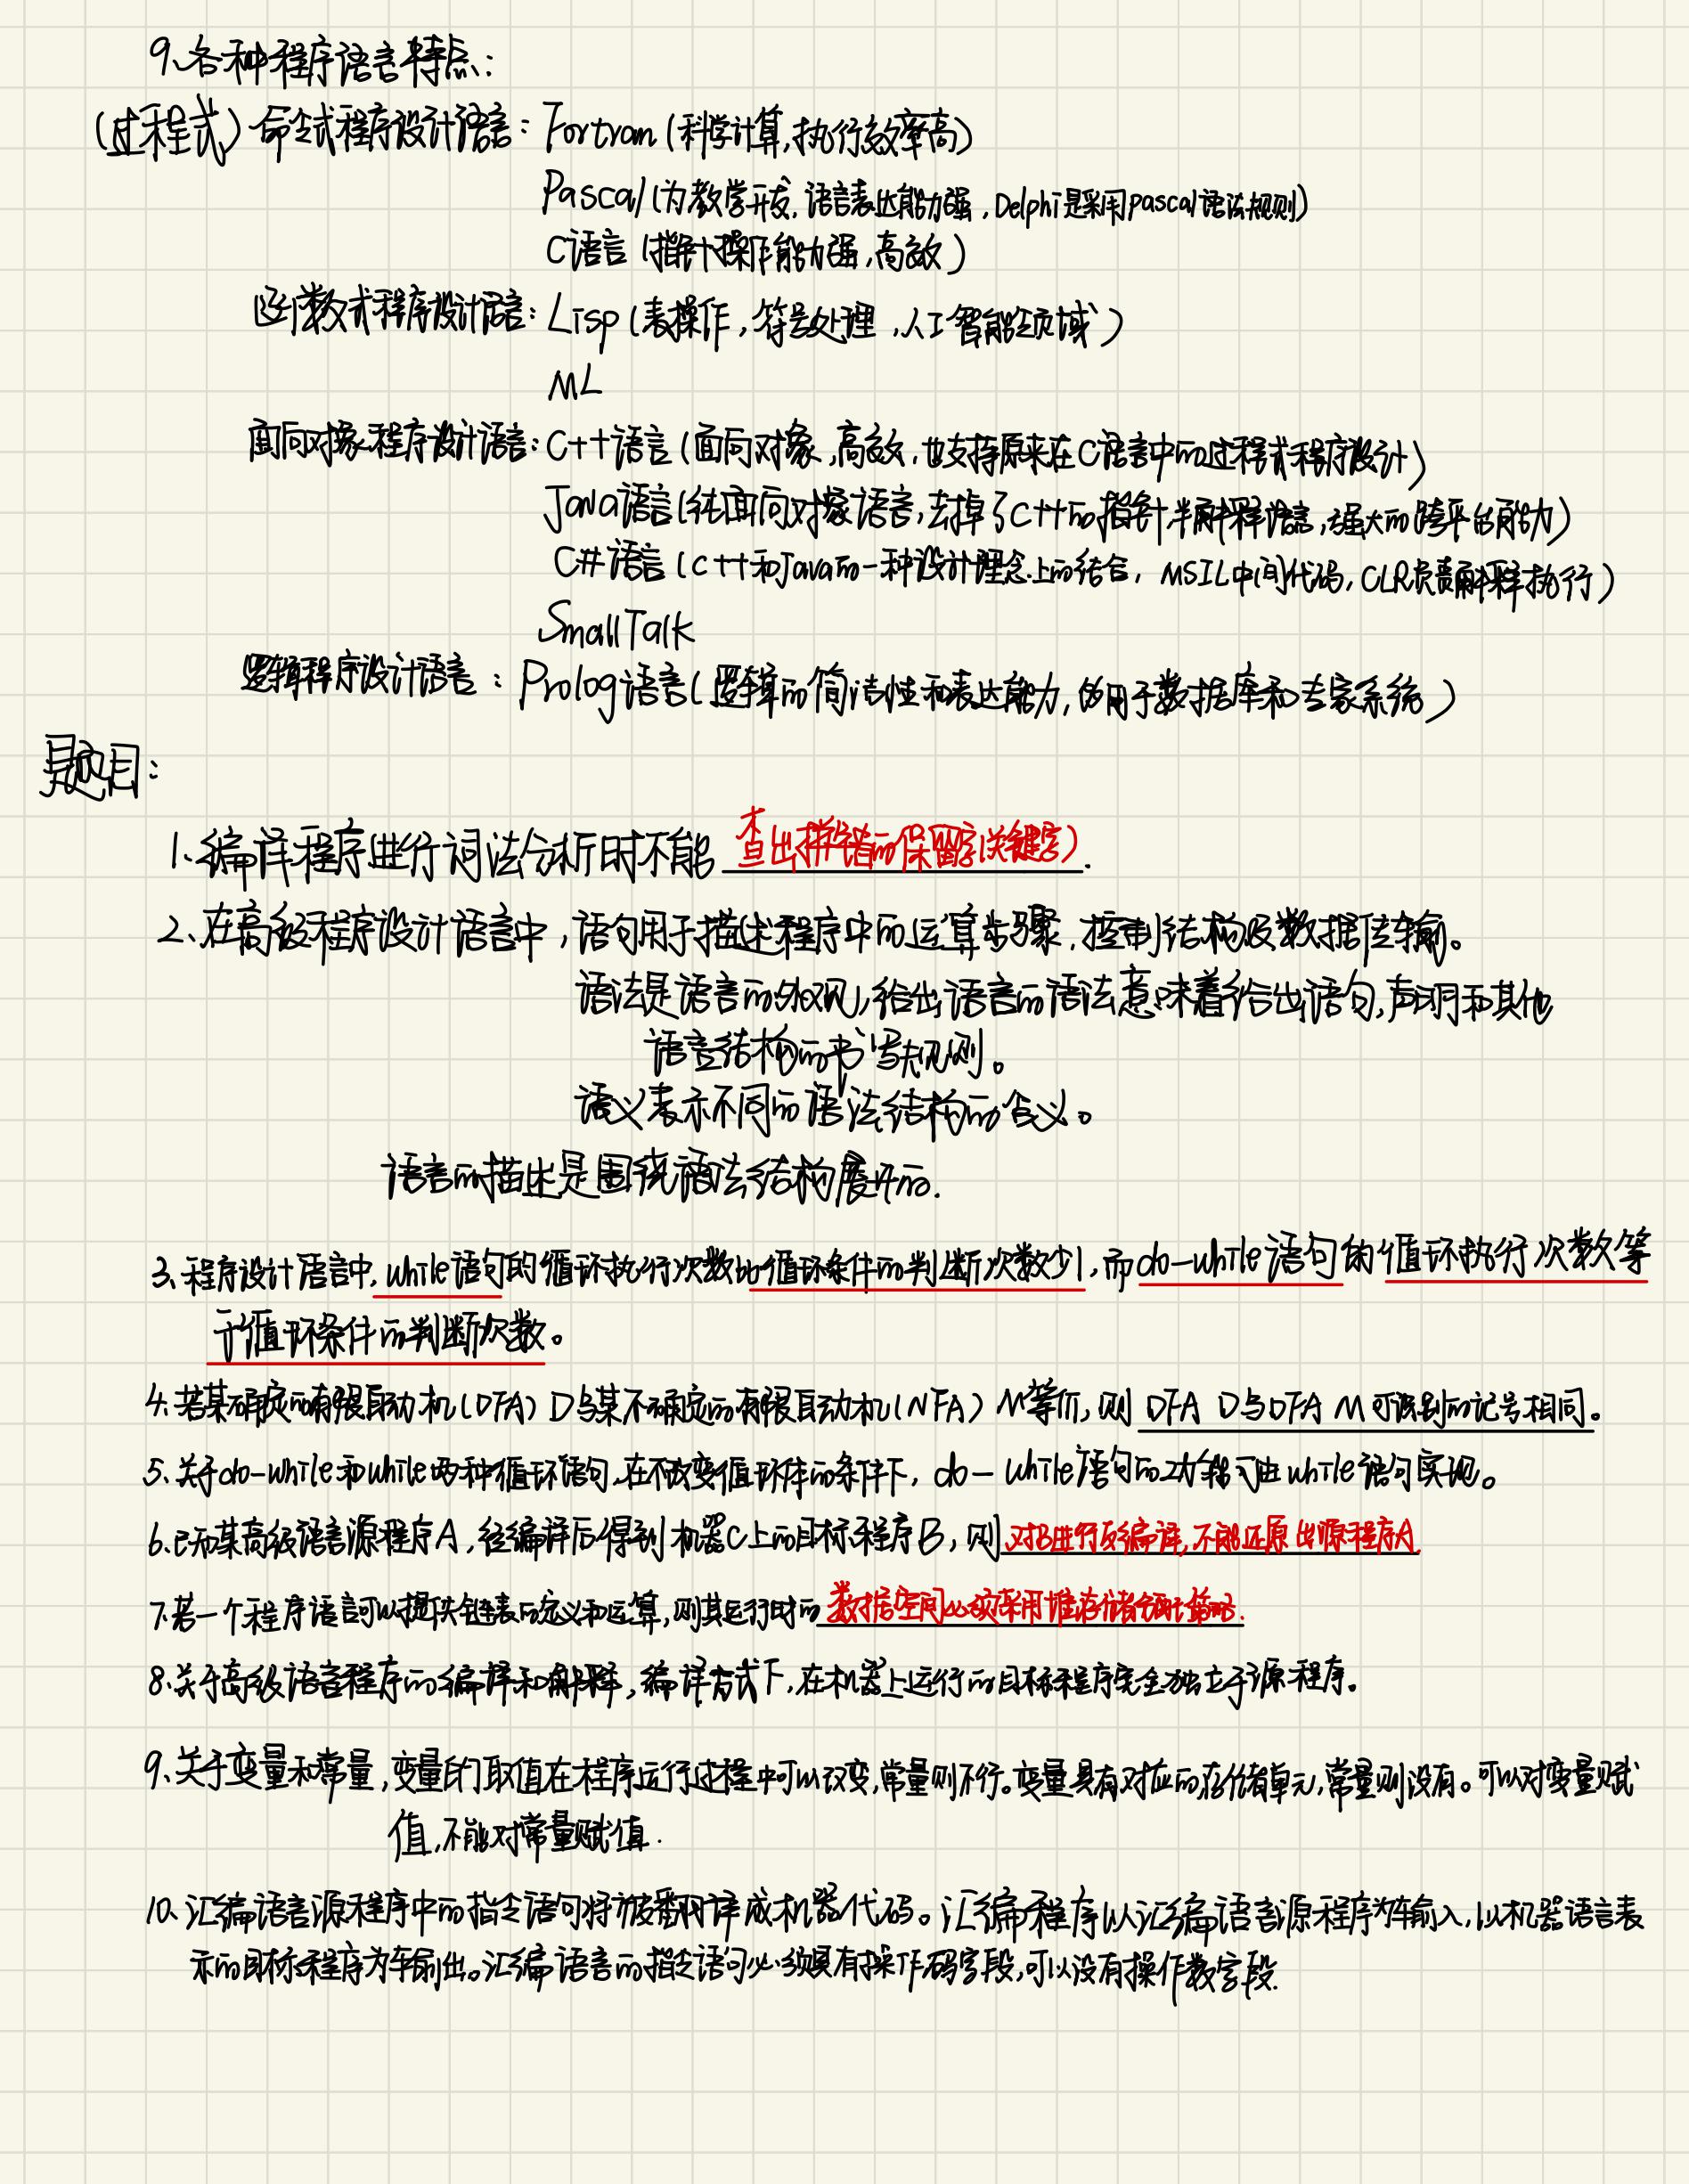 9、各种程序语言特点：
(过程式) 命令式程序设计语言：Fortran (科学计算,执行效率高)
Pascal (为教学开发, 语言表达能力强, Delphi是采用pascal语法规则)
C语言 (指针操作能力强,高效)
函数式程序设计语言：Lisp (表操作, 符号处理, 人工智能领域)
ML
面向对象程序设计语言：C++语言 (面向对象,高效,也支持原来在C语言中的过程式程序设计)
Java语言 (纯面向对象语言,去掉了C++的指针,半解释语言,强大的跨平台能力)
C#语言 (C++和Java的一种设计理念上的结合, MSIL中间代码, CLR负责解释执行)
SmallTalk
逻辑程序设计语言：Prolog语言 (逻辑的简洁性和表达能力, 的用于数据库和专家系统)
题目：
1、编译程序进行词法分析时不能 查出拼错的保留字(关键字).
2、在高级程序设计语言中,语句用于描述程序中的运算步骤,控制结构及数据传输。
语法是语言的外观,给出语言的语法意味着给出语句,声明和其他
语言结构的书写规则。
语义表示不同的语法结构的含义。
语言的描述是围绕语法结构展开的.
3、程序设计语言中, while语句的循环执行次数比循环条件的判断次数少,而do-while语句的循环执行次数等
于循环条件的判断次数。
4、若某确定的有限自动机(DFA) D与某不确定的有限自动机(NFA) M等价,则 DFA D与DFA M可识别的记号相同。
5、关于do-while和while两种循环语句,在不改变循环体的条件下, do-while语句的功能可由while语句实现。
6、已知某高级语言源程序A,经编译后得到机器C上的目标程序B,则对B进行反编译,不能还原出源程序A.
7、若一个程序语言可以提供链表的定义和运算,则其运行时的数据空间必须采用堆存储分配策略.
8、关于高级语言程序的编译和解释,编译方式下,在机器上运行的目标程序完全独立于源程序。
9、关于变量和常量,变量的取值在程序运行过程中可以改变,常量则不行。变量具有对应的存储单元,常量则没有。可以对变量赋
值,不能对常量赋值.
10、汇编语言源程序中的指令语句将被翻译成机器代码。汇编程序以汇编语言源程序为输入,以机器语言表
示的目标程序为输出。汇编语言的指令语句必须具有操作码字段,可以没有操作数字段.